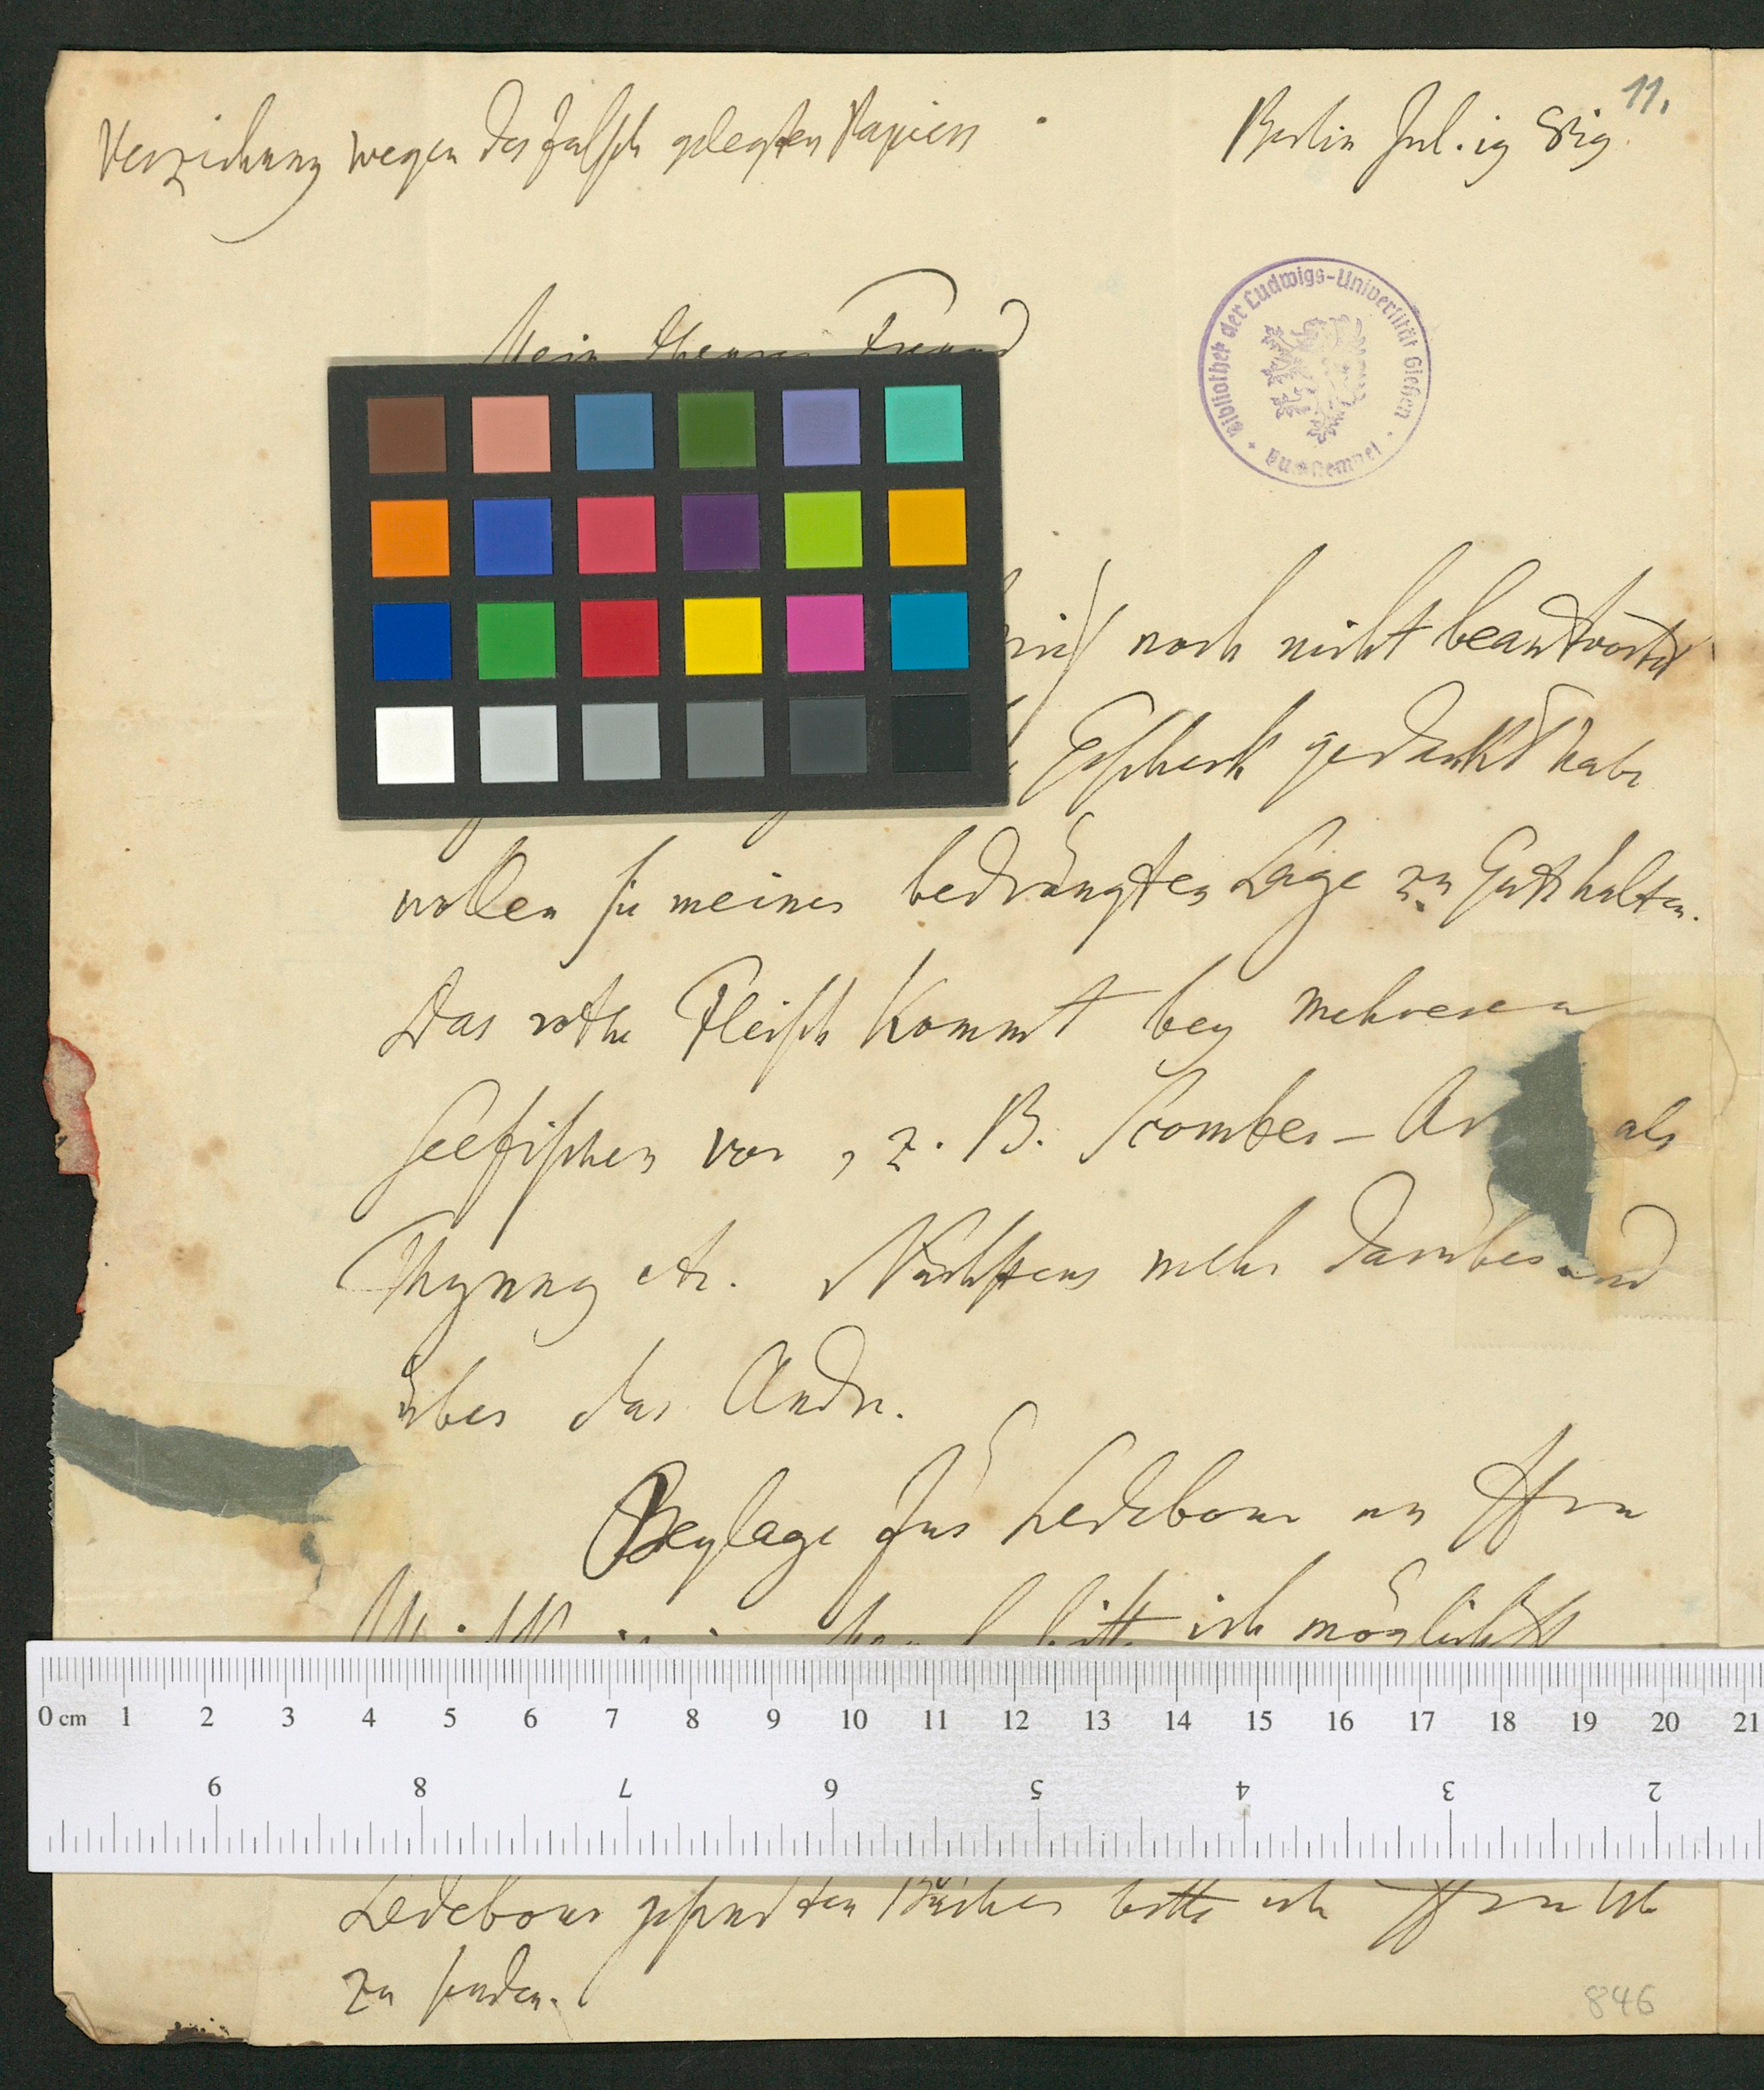 11.
Verzeihung wegen des falsch gelegten Papiers
Berlin Jul. 19
Bibliothek der Ludwigs-Universität Gießen
Mein theurer Freund
noch nicht beantwortet
gedankt habe
wollen Sie meiner bedrängten Lage zu Gute halten.
Das rothe Fleisch kommt bey mehreren
Seefischen vor, z. B. Scomber-Ar als
Thynnus etc. Nächstens mehr darüber und
über das Andre.
Beylage für Ledebour an Hrn
bitte ich möglichst
0 cm 1 2 3 4 5 6 7 8 9 10 11 12 13 14 15 16 17 18 19 20 21
9 8 7 6 5 4 3 2
Ledebour gesandten Bücher bitte ich Hrn
zu senden.
846